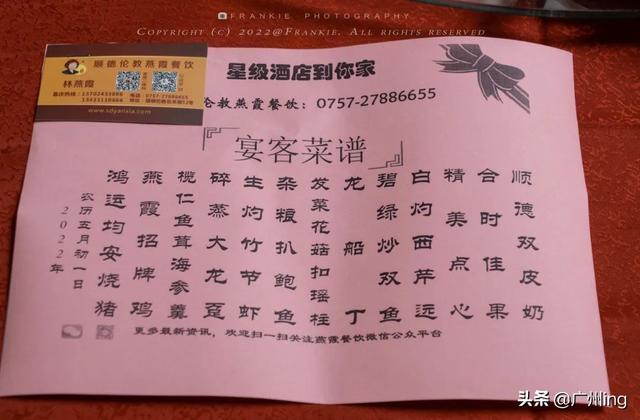 FRANKIE PHOTOGRAPHY
COPYRIGHT (C) 2022@FRANKIE. ALL RIGHTS RESERVED
顺德伦教燕霞餐饮
林燕霞
电话:0757-27886655
www.sdyanxia.com
星级酒店到你家
伦教燕霞餐饮:0757-27886655
宴客菜谱
2022年
农历五月初一日
鸿运均安烧猪
燕霞招牌鸡
榄仁鱼茸海参羹
碎蒸大龙趸
生灼竹节虾
杂粮扒鲍鱼
发菜花菇扣瑶柱
龙船丁
碧绿炒双鱼
白灼西芹远
精美点心
合时佳果
顺德双皮奶
更多最新资讯,欢迎扫一扫关注燕霞餐饮微信公众平台
头条 @广州ling